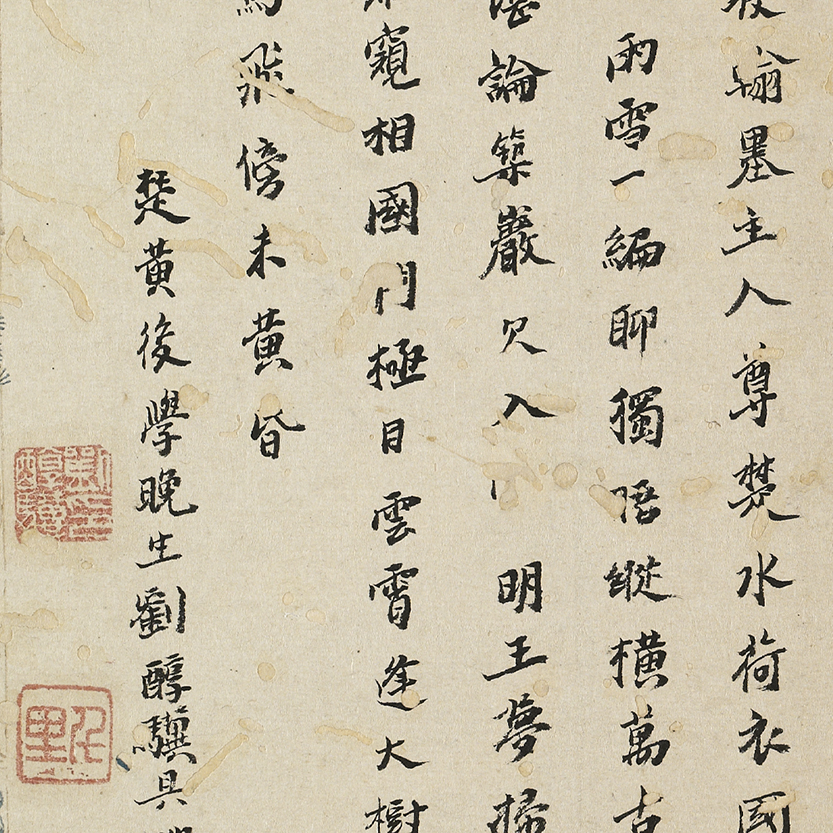 翰墨主人尊焚水荷衣國
雨雪一編聊獨唔縱橫萬古
論築巖欠入明王夢掃
窺相國門極目雲霄逢大樹
飛傍未黃昏
楚黃後學晚生劉醇驥具